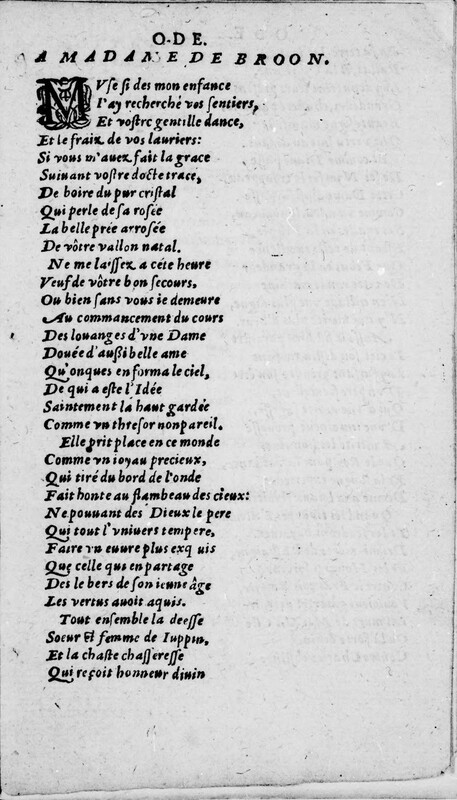 O-DE.
A MADAME DE BROON.
MVſe ſi des mon enfance
I'ay recherché vos ſentiers,
Et voſtre gentille dance,
Et le fraiz de vos lauriers:
Si vous m'auez fait la grace
Suiuant voſtre docte trace,
De boire du pur criſtal
Qui perle de ſa roſée
La belle prée arroſée
De vôtre vallon natal.
Ne me laiſſez a céte heure
Veuf de vôtre bon ſecours,
Ou bien ſans vous ie demeure
Au commancement du cours
Des louanges d'vne Dame
Douée d'auſsi belle ame
Qu'onques en forma le ciel,
De qui a eſte l'Idée
Saintement la haut gardée
Comme vn threſor nonpareil.
Elle prit place en ce monde
Comme vn ioyau precieux,
Qui tiré du bord de l'onde
Fait honte au flambeau des cieux:
Ne pouuant des Dieux le pere
Qui tout l'vniuers tempere,
Faire vn euure plus exq uis
Que celle qui en partage
Des le bers de ſon ieune âge
Les vertus auoit aquis.
Tout enſemble la deeſſe
Soeur & femme de Iuppin,
Et la chaſte chaſſereſſe
Qui reçoit honneur diuin